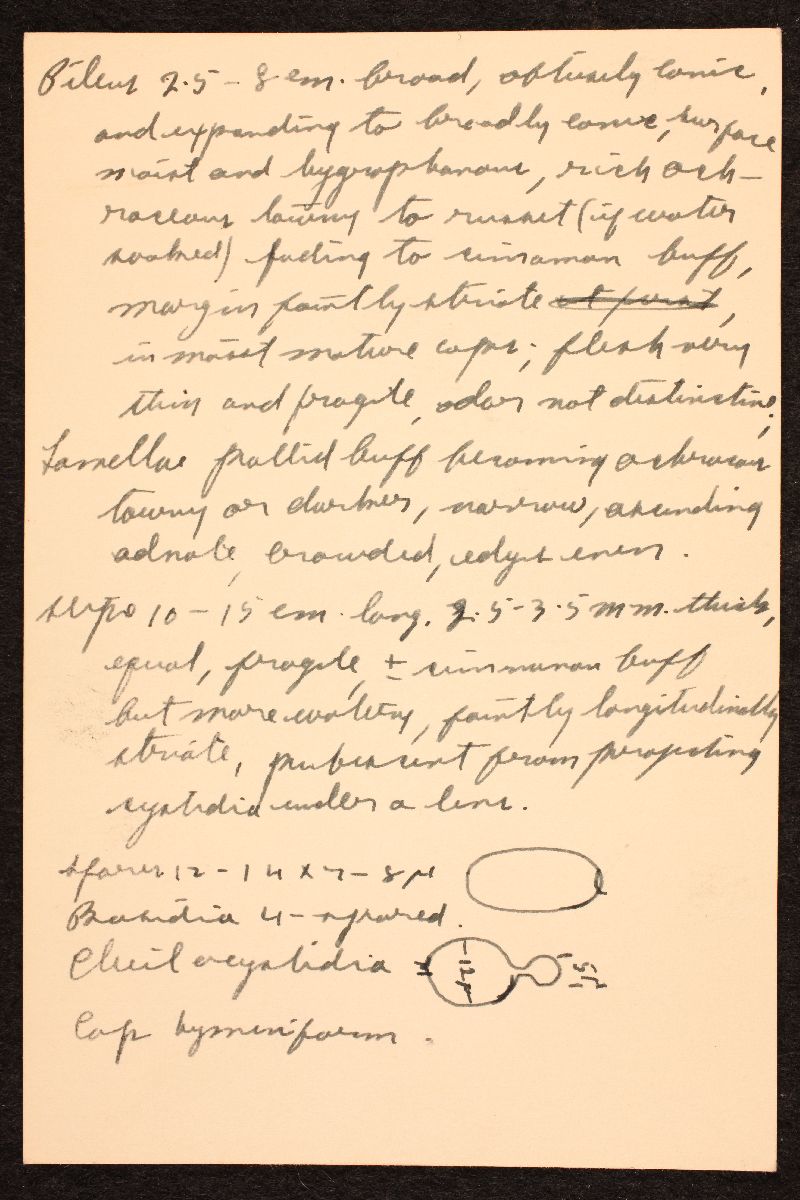 Pileus 2.5 - 3 cm. broad, obtusely conic,
and expanding to broadly conic, surface
moist and hygrophanous, rich och-
raceous tawny to russet (if water
soaked) fading to cinnamon buff,
margin faintly striate at first,
in moist mature caps; flesh very
thin and fragile, odor not distinctive;
Lamellae pallid buff becoming ochraceous
tawny or darker, narrow, ascending
adnate, crowded, edges even.
stipe 10 - 15 cm. long, 2.5-3.5 mm. thick,
equal, fragile, ± cinnamon buff
but more watery, faintly longitudinally
striate, pubescent from projecting
cystidia under a lens.
spores 12 - 14 x 7 - 8 µ
Basidia 4-spored.
Cheilocystidia
12µ
5µ
Cap hymeniform.